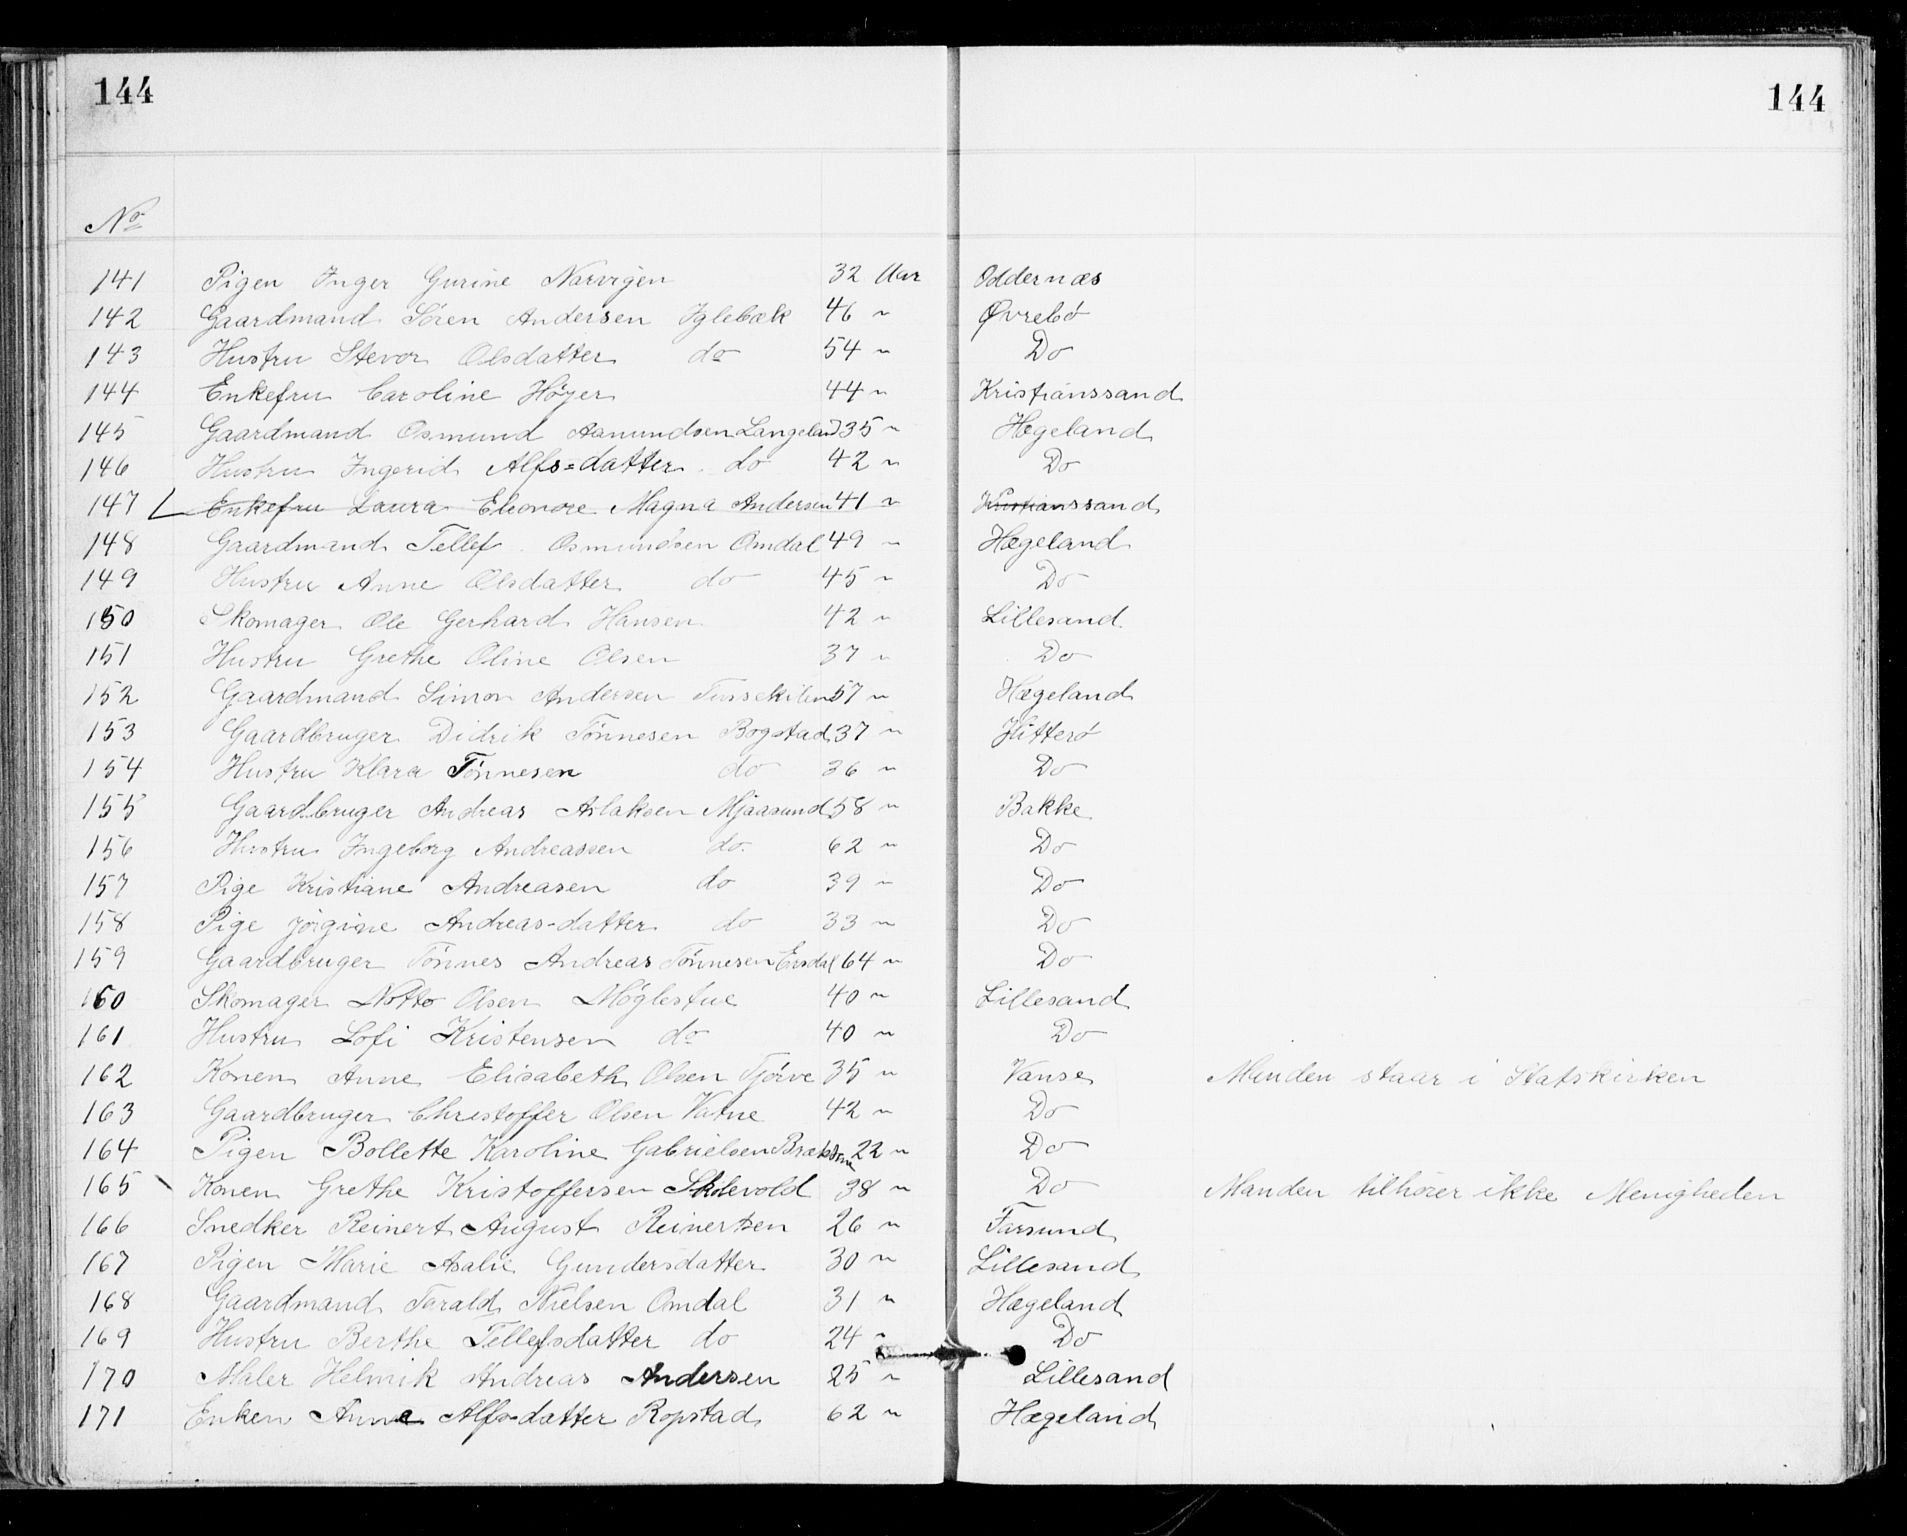 144 144
No
141 Pigen Inger Gurine Narvigen 32 Aar Oddernæs
142 Gaardmand Sören Andersen Iglebæk 46 " Øvrebö
143 Hustru Stevor Olsdatter do 54 " Do
144 Enkefru Caroline Höyer 44 " Kristianssand
145 Gaardmand Osmund Aanundsen Langeland 35 " Hægeland
146 Hustru Ingerid Alfs=datter do 42 " Do
147 Enkefru Laura Eleonore Magna Andersen 41 " Kristianssand
148 Gaardmand Tellef Osmundsen Omdal 49 " Hægeland
149 Hustru Anne Olsdatter do 45 " Do
150 Skomager Ole Gerhard Hansen 42 " Lillesand
151 Hustru Grethe Oline Olsen 37 " Do
152 Gaardmand Simon Andersen 57 " Hægeland
153 Gaardbruger Didrik Tönnesen Bogstad 37 " Hitterö
154 Hustru Klara Tönnesen do 36 " Do
155 Gaardbruger Andreas Aslaksen Mjaasund 58 " Bakke
156 Hustru Ingeborg Andreassen do. 62 " Do
157 Pige Kristiane Andreasen do 39 " Do
158 Pige Jörgine Andreas-datter do 33 " Do
159 Gaardbruger Tönnes Andreas Tönnesen 64 " Do
160 Skomager Notto Olsen Möglestue 40 " Lillesand
161 Hustru Sofi Kristensen do 40 " Do
162 Konen Anne Elisabeth Olsen Tjörve 35 " Vanse Manden staar i Statskirken
163 Gaardbruger Christoffer Olsen Vatne 42 " Do
164 Pigen Bollette Karoline Gabrielsen 22 " Do
165 Konen Grethe Kristoffersen Skolevold 38 " Do Manden tilhörer ikke Menigheden
166 Snedker Reinert August Reinertsen 26 " Farsund
167 Pigen Marie Asalie Gundersdatter 30 " Lillesand
168 Gaardmand Torald Nielsen Omdal 31 " Hægeland
169 Hustru Berthe Tellefsdatter do 24 " Do
170 Maler Helmik Andreas Andersen 25 " Lillesand
171 Enken Anne Alfs-datter Ropstad 62 " Hægeland